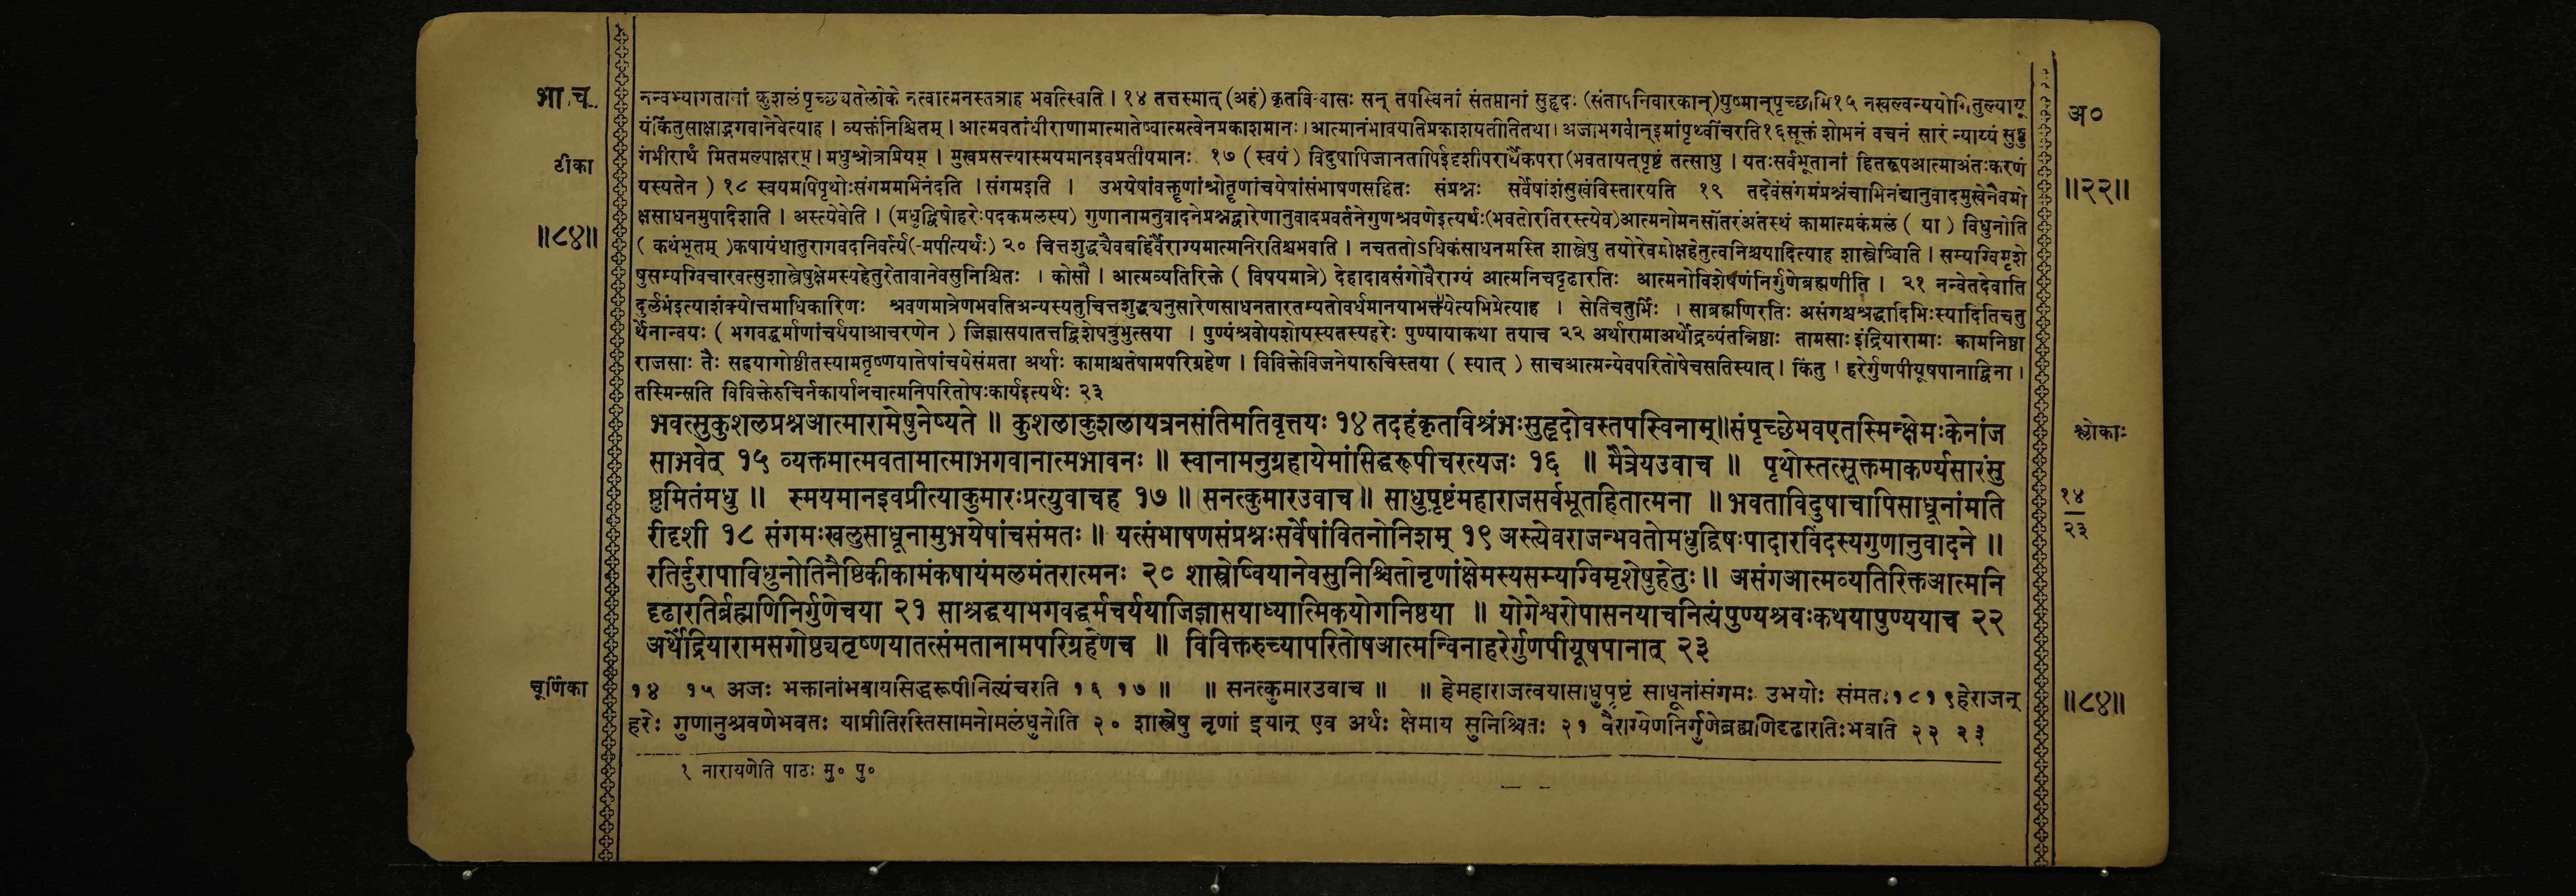 भा. च.
टीका
॥८४॥
नन्वभ्यागतानां कुशलंपृच्छ्यतेलोके नत्वात्मनस्तत्राह भवत्स्विति । १४ तत्तस्मात् (अहं) कृतविश्वासः सन् तपस्विनां संतप्तानां सुहृदः (संतापनिवारकान्)युष्मान्पृच्छामि१५ नखल्वन्ययोगितुल्याय्
यंकिंतुसाक्षाद्भगवानेवेत्याह । व्यक्तंनिश्चितम् । आत्मवतांधीराणामात्मातेष्वात्मत्वेनप्रकाशमानः। आत्मानंभावयतिप्रकाशयतीतितथा। अजाभगवान्इमांपृथ्वींचरति१६सूक्तं शोभनं वचनं सारं न्याय्यं सुष्ठु
गंभीरार्थं मितमल्पाक्षरम्। मधुश्रोत्रप्रियम् । मुखप्रसत्त्यास्मयमानइवप्रतीयमानः १७ ( स्वयं ) विदुषापिजानतापिईदृशीपरार्थैकपरा (भवतायत्पृष्टं तत्साधु । यतःसर्वभूतानां हितरूपआत्माअंतःकरणं
यस्यतेन ) १८ स्वयमपिपृथोःसंगममभिनंदति । संगमइति । उभयेषांवक्तॄणांश्रोतॄणांचयेषांसंभाषणसहितः संप्रश्नः सर्वेषांशंसुखंविस्तारयति १९ तदेवंसंगमंप्रश्नंचाभिनंद्यानुवादमुखेनैवमो
क्षसाधनमुपादिशति । अस्त्येवेति । (मधुद्विषोहरेःपदकमलस्य) गुणानामनुवादनेप्रश्नद्वारेणानुवादप्रवर्तनेगुणश्रवणेइत्यर्थः(भवतोरतिरस्त्येव)आत्मनोमनसोंतरंअंतस्थं कामात्मकंमलं ( या ) विधुनोति
( कथंभूतम् )कषायंधातुरागवदनिवर्त्य(-मपीत्यर्थः) २० चित्तशुद्ध्यैवबहिर्वैराग्यमात्मानिरतिश्चभवति । नचततोऽधिकंसाधनमस्ति शास्त्रेषु तयोरेवमोक्षहेतुत्वनिश्चयादित्याह शास्त्रेष्विति । सम्यग्विमृशे
षुसम्यग्विचारवत्सुशास्त्रेषुक्षेमस्यहेतुरेतावानेवसुनिश्चितः । कोसौ । आत्मव्यतिरिक्ते ( विषयमात्रे) देहादावसंगोवैराग्यं आत्मनिचदृढारतिः आत्मनोविशेषणंनिर्गुणेब्रह्मणीति । २१ नन्वेतदेवाति
दुर्लभंइत्याशंक्योत्तमाधिकारिणः श्रवणमात्रेणभवतिअन्यस्यतुचित्तशुद्ध्यनुसारेणसाधनतारतम्यतोवर्धमानयाभक्त्येत्यभिप्रेत्याह । सेतिचतुर्भिः । साब्रह्मणिरतिः असंगश्चश्रद्धादिभिःस्यादितिचतु
र्थेनान्वयः ( भगवद्धर्माणांचर्ययाआचरणेन ) जिज्ञासयातत्तद्विशेषबुभुत्सया । पुण्यंश्रवोयशोयस्यतस्यहरेः पुण्यायाकथा तयाच २२ अर्थारामाअर्थोद्रव्यंतन्निष्ठाः तामसाः इंद्रियारामाः कामनिष्ठा
राजसाः तैः सहयागोष्ठीतस्यामतृष्णयातेषांचयेसंमता अर्थाः कामाश्चतेषामपरिग्रहेण । विविक्तेविजनेयारुचिस्तया ( स्यात् ) साचआत्मन्येवपरितोषेचसतिस्यात् । किंतु । हरेर्गुणपीयूषपानाद्विना ।
तस्मिन्सति विविक्तेरुचिर्नकार्यानचात्मनिपरितोषःकार्यइत्यर्थः २३
भवत्सुकुशलप्रश्नआत्मारामेषुनेष्यते ॥ कुशलाकुशलायत्रनसंतिमतिवृत्तयः १४ तदहंकृतविश्रंभःसुहृदोवस्तपस्विनाम्॥संपृच्छेभवएतस्मिन्क्षेमःकेनांज
साभवेत् १५ व्यक्तमात्मवतामात्माभगवानात्मभावनः ॥ स्वानामनुग्रहायेमांसिद्धरूपीचरत्यजः १६ ॥ मैत्रेयउवाच ॥ पृथोस्तत्सूक्तमाकर्ण्यसारंसु
ष्ठुमितंमधु ॥ स्मयमानइवप्रीत्याकुमारःप्रत्युवाचह १७ ॥ सनत्कुमारउवाच ॥ साधुपृष्टंमहाराजसर्वभूतहितात्मना ॥ भवताविदुषाचापिसाधूनांमति
रीदृशी १८ संगमःखलुसाधूनामुभयेषांचसंमतः ॥ यत्संभाषणसंप्रश्नःसर्वेषांवितनोनिशम् १९ अस्त्येवराजन्भवतोमधुद्विषःपादारविंदस्यगुणानुवादने ॥
रतिर्दुरापाविधुनोतिनैष्ठिकीकामंकषायंमलमंतरात्मनः २० शास्त्रेष्वियानेवसुनिश्चितोनृणांक्षेमस्यसम्यग्विमृशेषुहेतुः॥ असंगआत्मव्यतिरिक्तआत्मनि
दृढारतिर्ब्रह्मणिनिर्गुणेचया २१ साश्रद्धयाभगवद्धर्मचर्ययाजिज्ञासयाध्यात्मिकयोगनिष्ठया ॥ योगेश्वरोपासनयाचनित्यंपुण्यश्रवःकथयापुण्ययाच २२
अर्थेंद्रियारामसगोष्ठ्यतृष्णयातत्संमतानामपरिग्रहेणच ॥ विविक्तरुच्यापरितोषआत्मन्विनाहरेर्गुणपीयूषपानात् २३
चूर्णिका
१४ १५ अजः भक्तानांभवायसिद्धरूपीनित्यंचरति १६ १७ ॥ ॥ सनत्कुमारउवाच ॥ ॥ हेमहाराजत्वयासाधुपृष्टं साधूनांसंगमः उभयोः संमतः१८१९हेराजन्
हरेः गुणानुश्रवणेभवतः याप्रीतिरस्तिसामनोमलंधुनोति २० शास्त्रेषु नृणां इयान् एव अर्थः क्षेमाय सुनिश्चितः २१ वैराग्येणनिर्गुणेब्रह्मणिदृढारतिःभवति २२ २३
१ नारायणेति पाठः मु० पु०
अ०
॥२२॥
श्लोकाः
१४
२३
॥८४॥